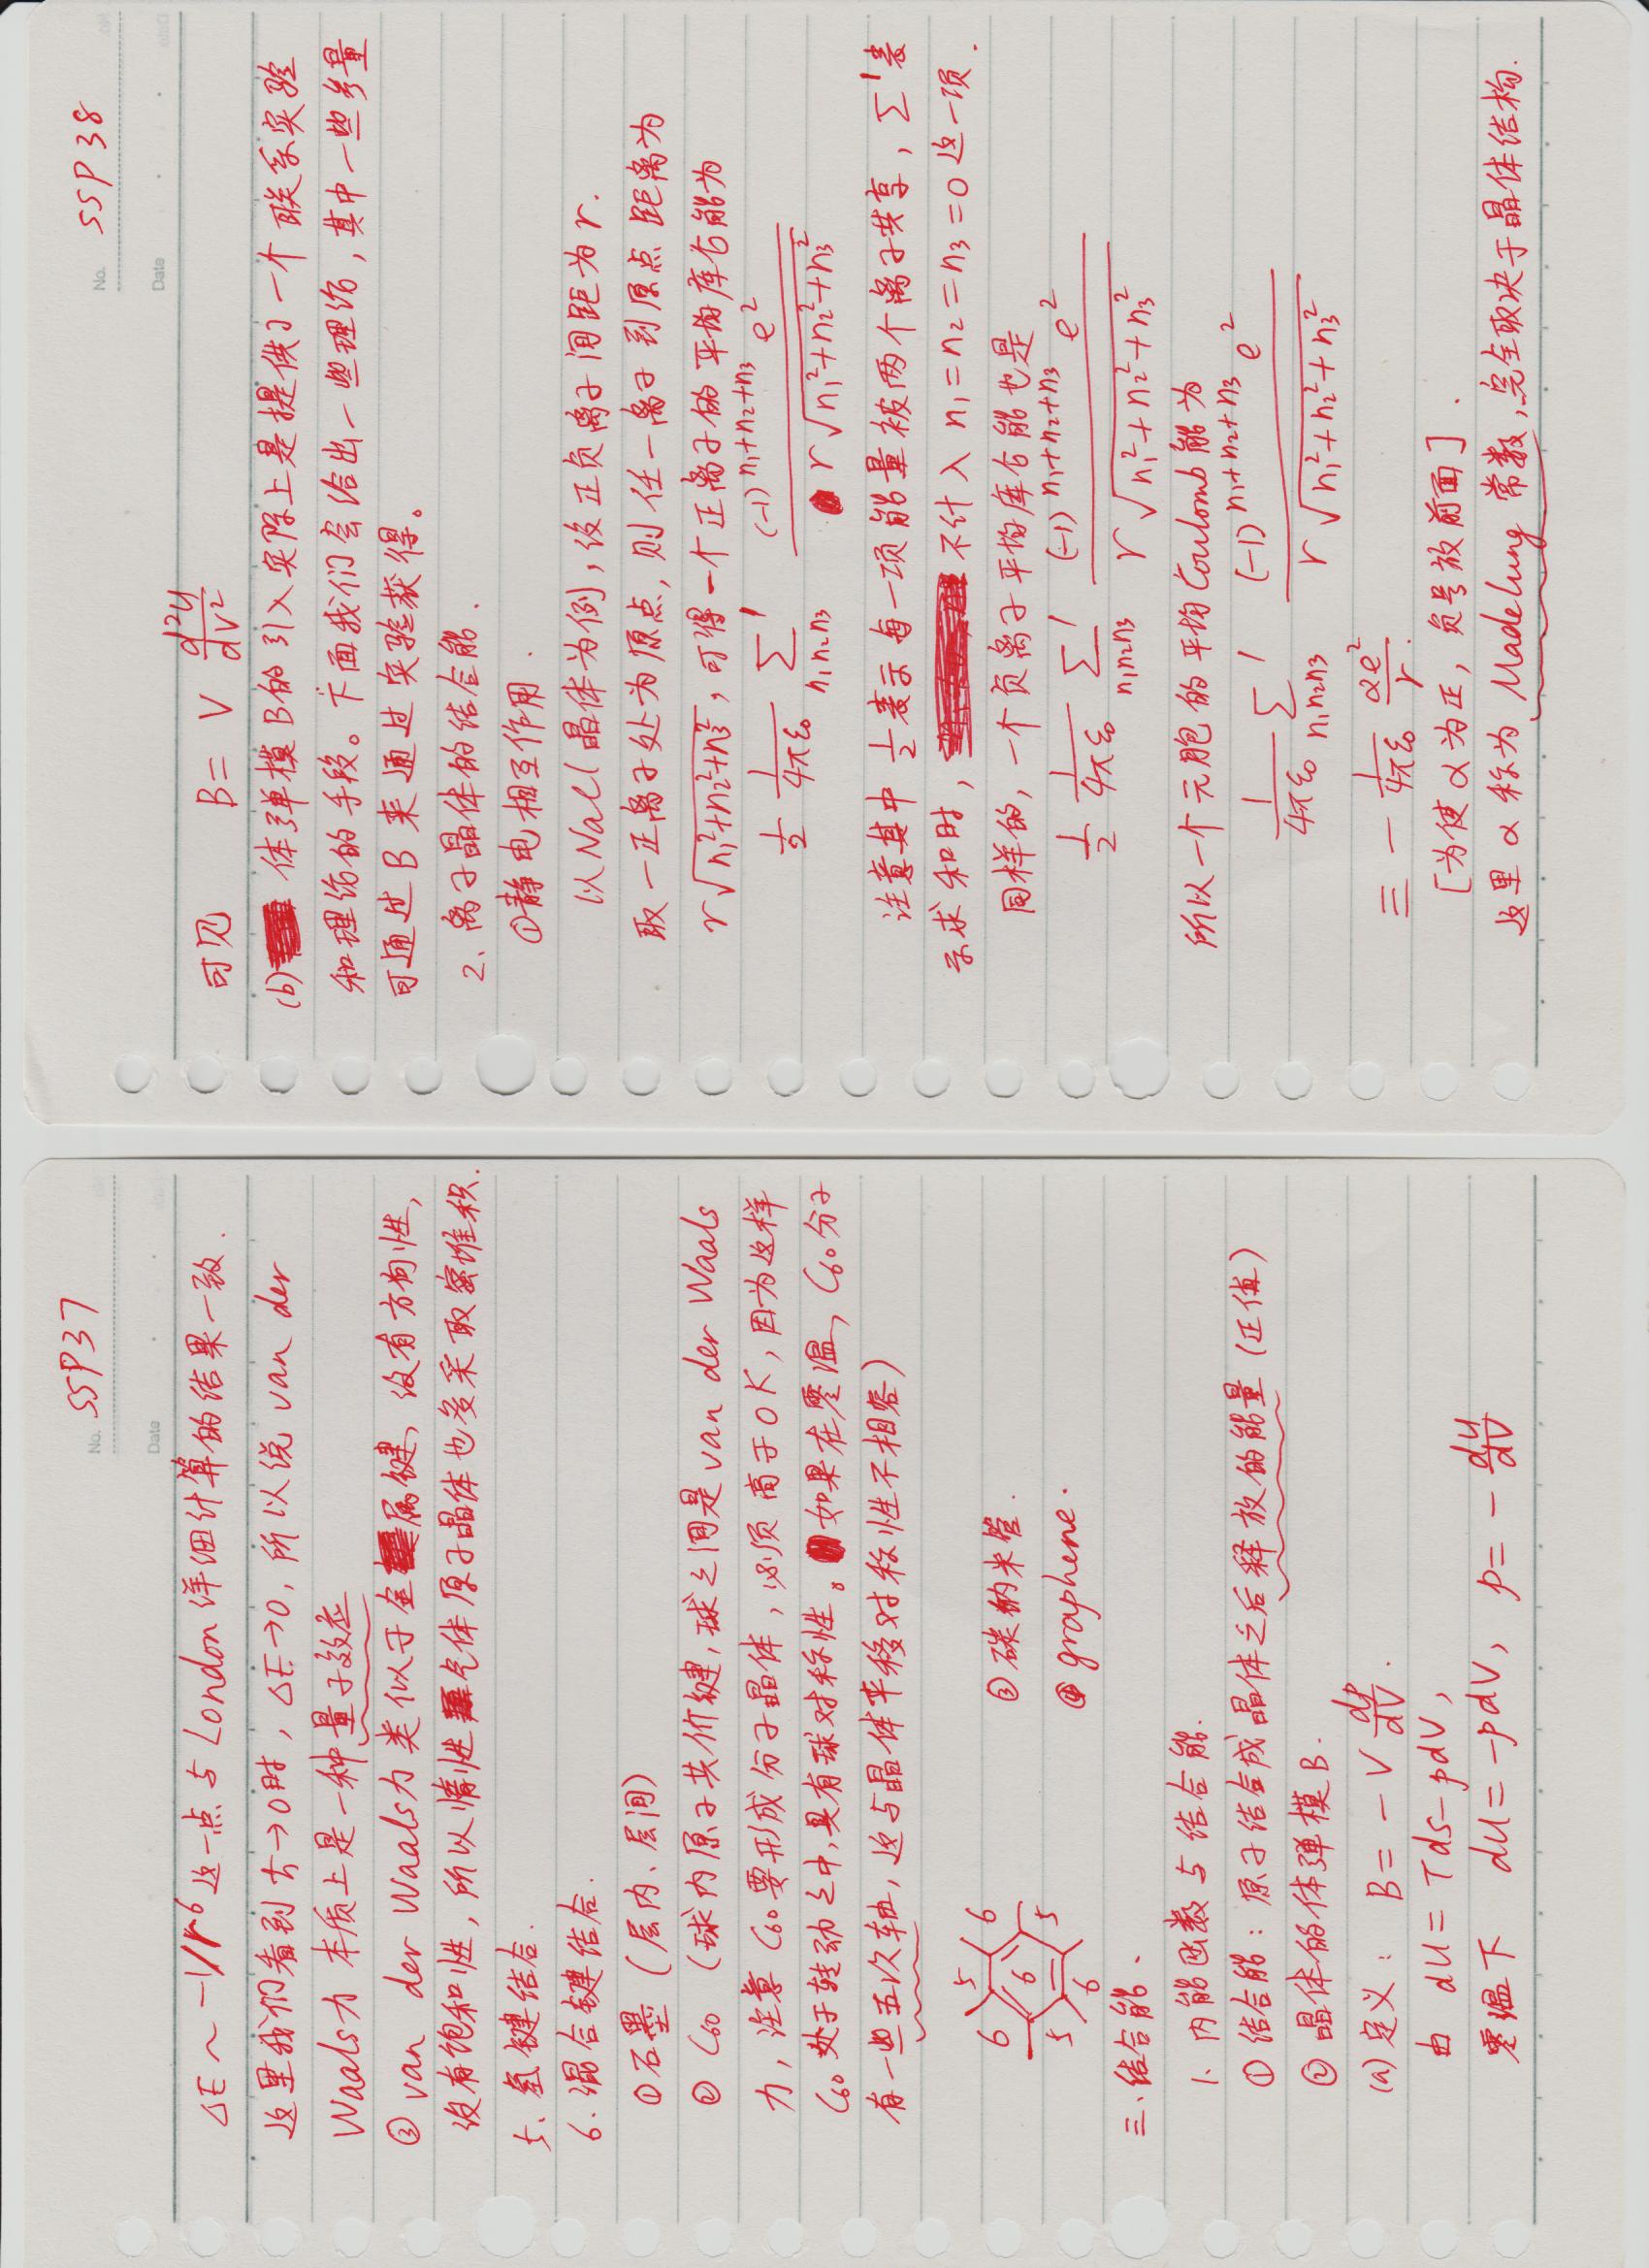 No. SSP37
Date
ΔE ~ -1/r⁶ 这一点与London详细计算的结果一致.
这里我们看到 ℏ→0时, ΔE→0, 所以说 van der
Waals力 本质上是一种量子效应
③ van der Waals力 类似于金属键, 没有方向性,
没有饱和性, 所以惰性气体原子晶体也多采取密堆积.
5、氢键结合.
6. 混合键结合.
①石墨 (层内、层间)
② C₆₀ (球内原子共价键, 球之间是 van der Waals
力, 注意 C₆₀要形成分子晶体, 必须高于0K, 因为这样
C₆₀处于转动之中, 具有球对称性。如果在零温, C₆₀分子
有一些五次轴, 这与晶体平移对称性不相容)
5
6 6
6
5 5
6
③ 碳纳米管.
④ graphene.
三、结合能.
1、内能函数与结合能.
① 结合能: 原子结合成晶体之后释放的能量 (正值)
② 晶体的体弹模B.
(a) 定义: B = -V dp/dV.
由 dU = Tds - pdV,
零温下 dU = -pdV, p = - dU/dV
No. SSP 38
Date
可见 B = V d²U/dV²
(b) 体弹模B的引入实际上是提供了一个联系实验
和理论的手段。下面我们会给出一些理论, 其中一些参量
可通过B来通过实验获得。
2、离子晶体的结合能.
①静电相互作用.
以NaCl晶体为例, 设正负离子间距为r.
取一正离子处为原点, 则任一离子到原点距离为
r√(n₁²+n₂²+n₃²), 可得一个正离子的平均库仑能为
1/2 1/4πε₀ Σ'n₁n₂n₃ (-1)^(n₁+n₂+n₃) e² / r√(n₁²+n₂²+n₃²)
注意其中 1/2 表示每一项能量被两个离子共享, Σ'表
示求和时, 不计入 n₁=n₂=n₃=0 这一项.
同样的, 一个负离子平均库仑能也是
1/2 1/4πε₀ Σ'n₁n₂n₃ (-1)^(n₁+n₂+n₃) e² / r√(n₁²+n₂²+n₃²)
所以一个元胞的平均Coulomb能为
1/4πε₀ Σ'n₁n₂n₃ (-1)^(n₁+n₂+n₃) e² / r√(n₁²+n₂²+n₃²)
≡ - 1/4πε₀ αe²/r.
[为使α为正, 负号放前面].
这里α称为 Madelung 常数, 完全取决于晶体结构.